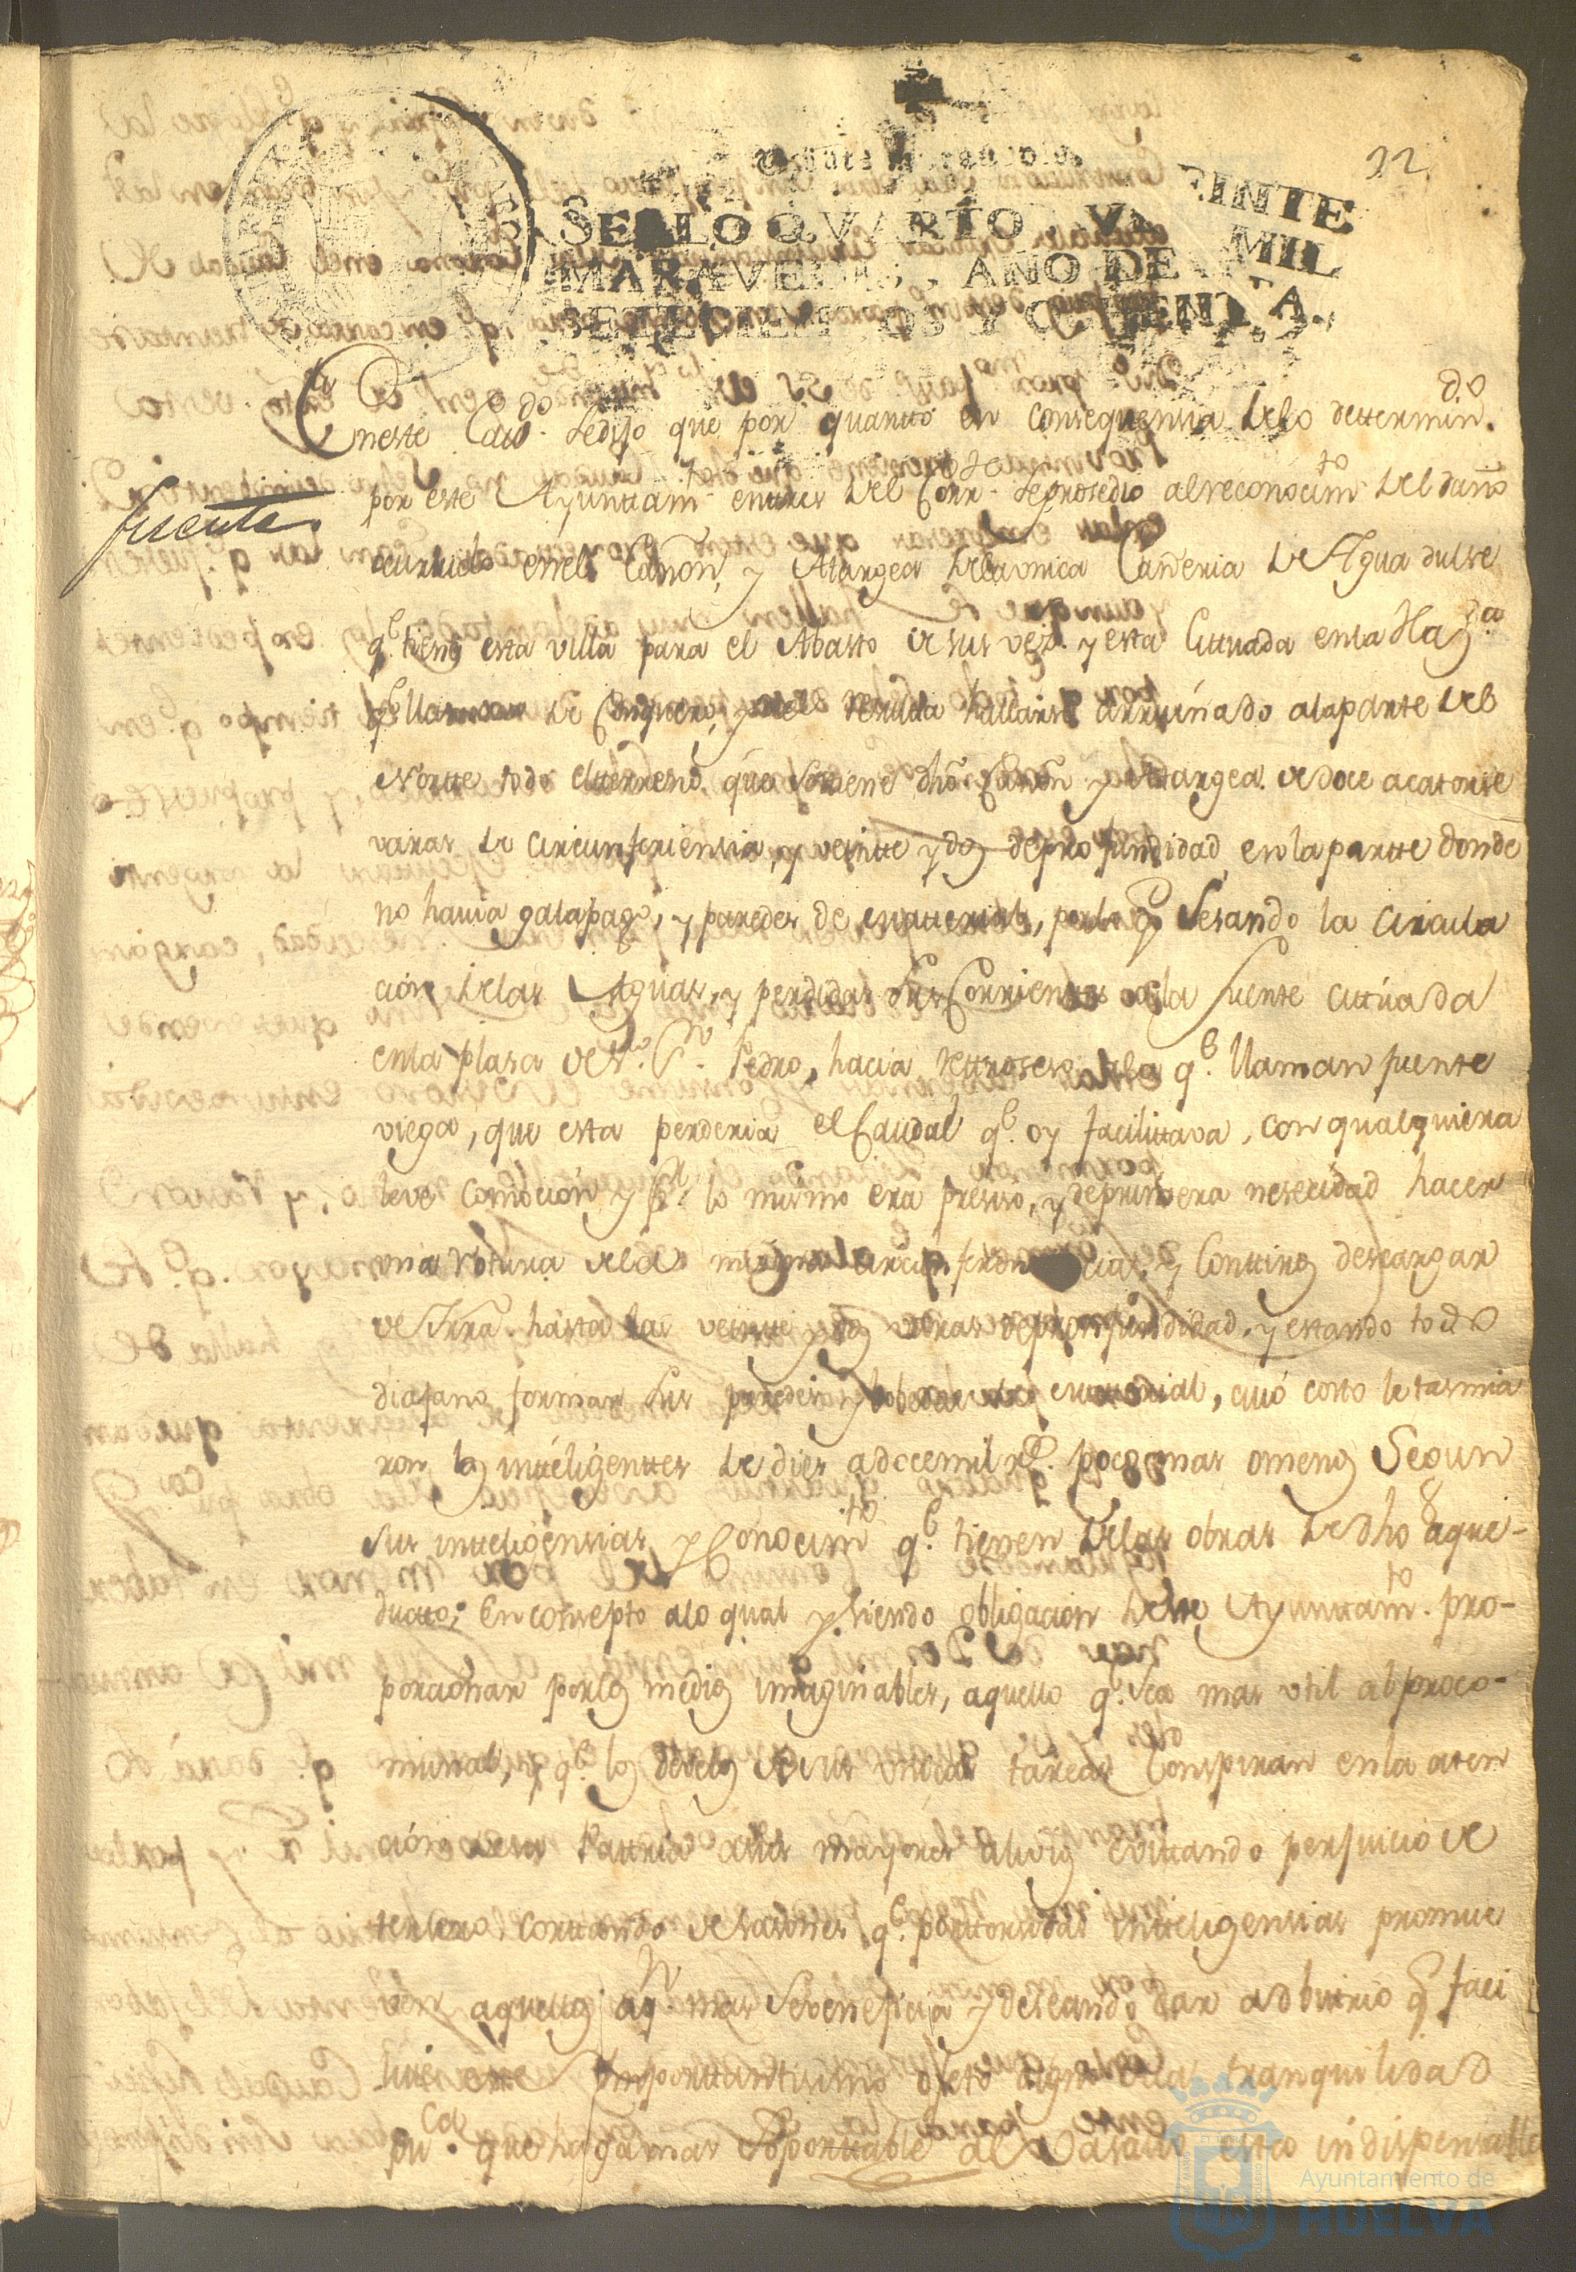 32
Veinte maravedis.
SELLO QVARTO, VEINTE
MARAVEDIS, AÑO DE MIL
SETECIENTOS Y OCHENTA.
fuente
Eneste Cavdo. sedijo que por quantto en consequensia delo dettermindo.
por este Ayunttamto. enttres del Corrte. seprosedio alreconocimto. del daño
ocurrido enel Cañon, y Atargea delaunica Cañeria de Agua dulse
qe. tiene esta villa para el Abasto de sus vezs. y esta cittuada enla Hazda.
qe. llaman de Conquero, y de hallarse arruinado alaparte del
Nortte todo eltterreno que sostiene dho Cañon y Atargea de doce acatorse
varas de circunferiensia, y veintte y dos deprofundidad, enlapartte donde
no havia galapago, y paredes de matterial, porlo qe. Sesando la circula
cion delas Aguas, y perdidas sus Corrientes ala fuente cittuada
enla plasa deSor. Sn. Pedro, hacia rettroseso ala qe. llaman fuente
vieja, que esta perderia el Caudal qe. oy facilittava, con qualquiera
leve comocion y pr. lo mismo era presiso, y deprimera nesecidad hacer
una rotura dela misma circunferencia, y conttinos descargar
de tierra hasta las veintte y dos varas deprofundidad, y estando todo
diafano formar sus paredes y bobedas de matterial, cuio costo letasmia
ron los intteligenttes de dies adocemil rs. poco mas omenos Segun
sus intteligensias, y Conocimto. qe. tienen delas obras de dho aque-
ductto; En consepto alo qual y siendo obligacion deste Ayunttamto. pro-
porcionar porlos medios imaginables, aquello qe. sea mas util alproco-
munal, y qe. los desvelos de sus tareas conspiran enla aten
cion dela Pattria asus mayores alivios evittando perjuicio de
tersero, corttando desasones qe. porttorsidas intteligensias promue
ven aquellos aqn. mas Sebenefisia y deseando dar adbitrio qe. faci
litte Importtanttisimo ojeto digno dela tranquilidad
puca. que haga mas soporttable al Vasallo esto indispensable
Ayuntamiento de
HUELVA